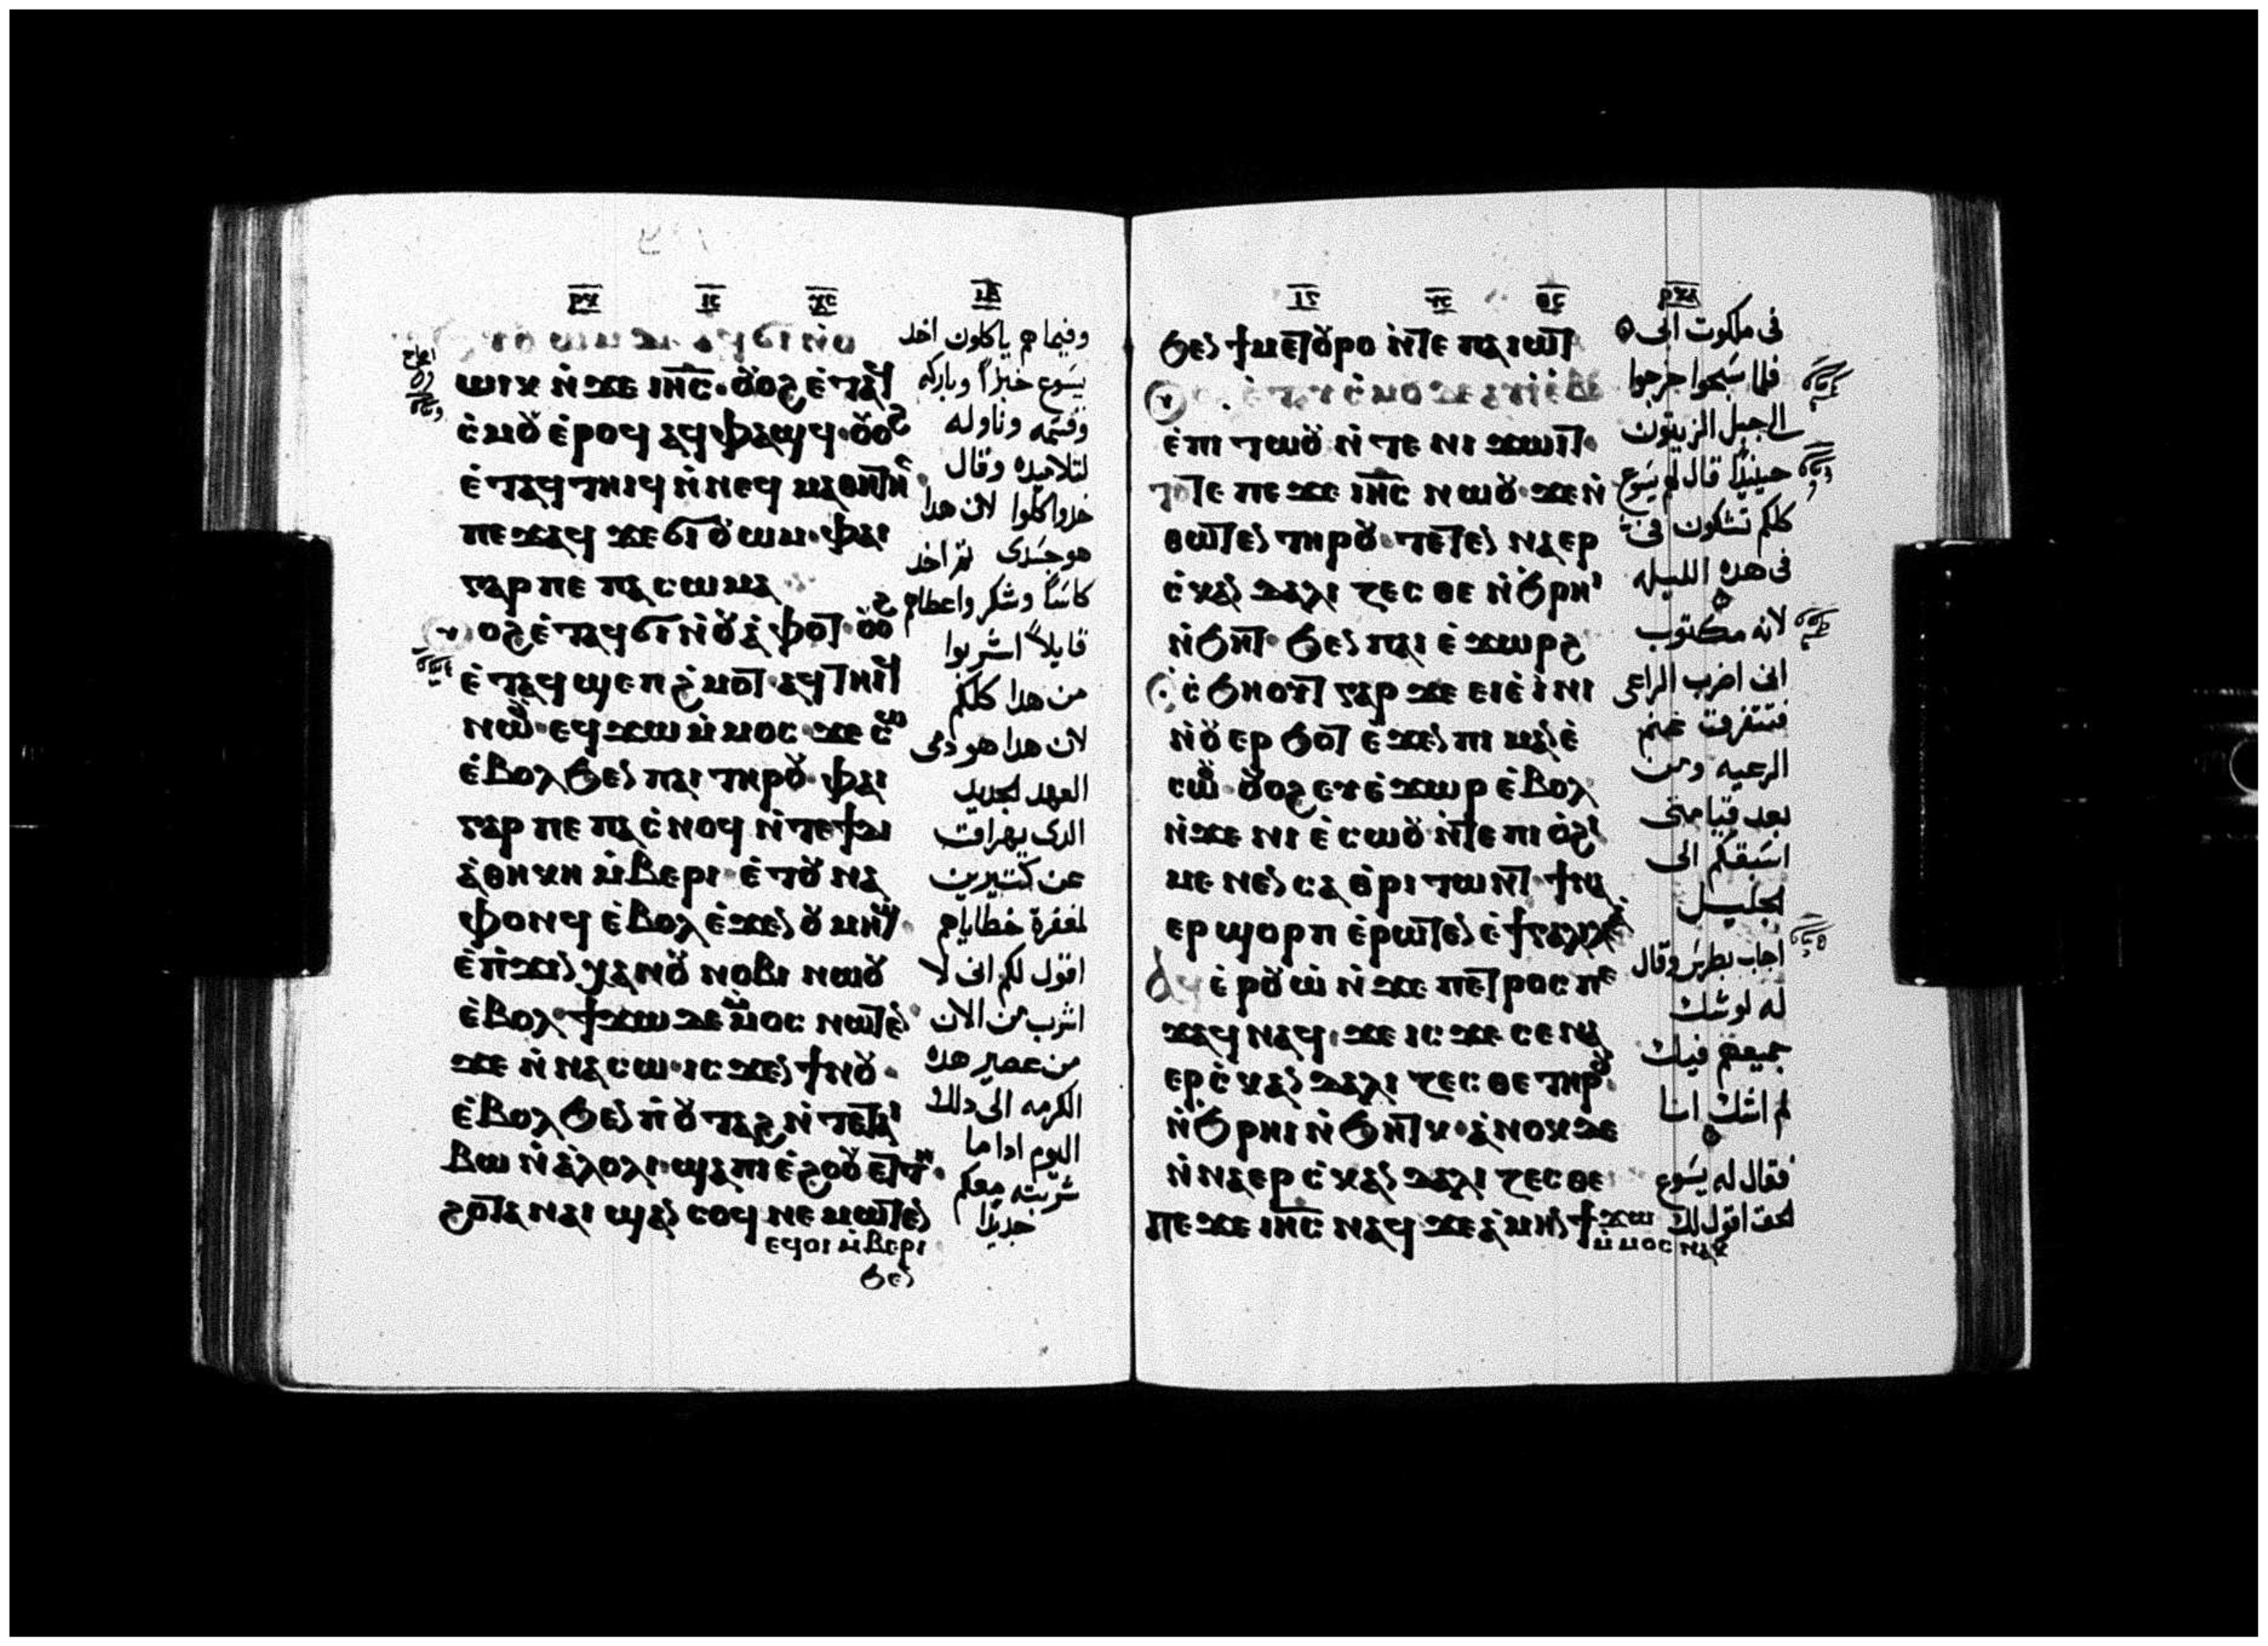 ⲱⲓⲕ ⲛ̀ϫⲉ ⲓⲏⲥ ⲟⲩⲟϩ ⲉ̀ⲧⲁϥ
ⲥ̀ⲙⲟⲩ ⲉ̀ⲣⲟϥ ⲁϥⲫⲁϣϥ ⲟⲩⲟϩ
ⲉ̀ⲧⲁϥⲧⲏⲓϥ ⲛ̀ⲛⲉϥ ⲙⲁⲑⲏⲧⲏⲥ
ⲡⲉϫⲁϥ ϫⲉ ϭⲓ ⲟⲩⲱⲙ ⲫⲁⲓ
ⲅⲁⲣ ⲡⲉ ⲡⲁ ⲥⲱⲙⲁ
ⲟⲩⲟϩ ⲉ̀ⲧⲁϥϭⲓ ⲛ̀ⲟⲩⲁ̀ⲫⲟⲧ ⲟⲩⲟϩ
ⲉ̀ⲧⲁϥϣⲉⲡ ϩ̀ⲙⲟⲧ ⲁϥⲧⲏⲓϥ
ⲛⲱⲟⲩ ⲉϥϫⲱ ⲙ̀ⲙⲟⲥ ϫⲉ ⲥⲱ
ⲉ̀ⲃⲟⲗ ϧⲉⲛ ⲫⲁⲓ ⲧⲏⲣⲟⲩ ⲫⲁⲓ
ⲅⲁⲣ ⲡⲉ ⲡⲁ ⲥ̀ⲛⲟϥ ⲛ̀ⲧⲉ ϯⲇⲓ
ⲁ̀ⲑⲏⲕⲏ ⲙ̀ⲃⲉⲣⲓ ⲉ̀ⲧⲟⲩⲛⲁ
ⲫⲟⲛϥ ⲉ̀ⲃⲟⲗ ⲉ̀ϫⲉⲛ ⲟⲩⲙⲏϣ
ⲉ̀ⲡ̀ϫⲓⲛ ⲭⲁ ⲛⲟⲩ ⲛⲟⲃⲓ ⲛⲱⲟⲩ
ⲉ̀ⲃⲟⲗ ϯϫⲱ ⲇⲉ ⲙ̀ⲙⲟⲥ ⲛⲱⲧⲉⲛ
ϫⲉ ⲛ̀ⲛⲁⲥⲱ ⲓⲥϫⲉⲛ ϯⲛⲟⲩ
ⲉ̀ⲃⲟⲗ ϧⲉⲛ ⲡ̀ⲟⲩⲧⲁϩ ⲛ̀ⲧⲉ ⲧⲁⲓ
ⲃⲱ ⲛ̀ⲁ̀ⲗⲟⲗⲓ ϣⲁ ⲡⲓ ⲉ̀ϩⲟⲟⲩ ⲉⲧⲉⲙ
ϩⲟⲧⲁⲛ ⲁⲓϣⲁⲛⲥⲟϥ ⲛⲉⲙⲱⲧⲉⲛ
ⲉϥⲟⲓ ⲙ̀ⲃⲉⲣⲓ
ϧⲉⲛ
وفيما هم ياكلون اخد
يسوع خبزاً وباركه
وقسمه وناوله
لتلاميده وقال
خدوا كلوا لان هدا
هو جسدى تم اخد
كاساً وشكر واعطاهم
قايلاً اشربوا
من هدا كلكم
لان هدا هو دمى
العهد الجديد
الدى يهراق
عن كتيرين
لمغفرة خطاياهم
اقول لكم انى لا
اشرب من الان
من عصير هده
الكرمه الى دلك
اليوم اداما
شربته معكم
جديدًا
ϧⲉⲛ ϯⲙⲉⲧⲟⲩⲣⲟ ⲛ̀ⲧⲉ ⲡⲁⲓⲱⲧ
ⲉ̀ⲡⲓ ⲧⲱⲟⲩ ⲛ̀ⲧⲉ ⲛⲓ ϫⲱⲓⲧ
ⲧⲟⲧⲉ ⲡⲉϫⲉ ⲓⲏⲥ ⲛⲱⲟⲩ ϫⲉ ⲛ̀
ⲑⲱⲧⲉⲛ ⲧⲏⲣⲟⲩ ⲧⲉⲧⲉⲛⲛⲁⲉⲣ
ⲥ̀ⲕⲁⲛⲇⲁⲗⲓⲍⲉⲥⲑⲉ ⲛ̀ϧⲣⲏⲓ
ⲛ̀ϧⲏⲧ ϧⲉⲛ ⲡⲁⲓ ⲉ̀ϫⲱⲣϩ
ⲥ̀ϧⲏⲟⲩⲧ ⲅⲁⲣ ϫⲉ ⲉⲓⲉ̀ⲓ̀ⲛⲓ
ⲛ̀ⲟⲩ ⲉⲣϧⲟⲧ ⲉ̀ϫⲉⲛ ⲡⲓ ⲙⲁⲛⲉ̀
ⲥⲱⲟⲩ ⲟⲩⲟϩ ⲉⲩⲉ̀ϫⲱⲣ ⲉ̀ⲃⲟⲗ
ⲛ̀ϫⲉ ⲛⲓ ⲉ̀ⲥⲱⲟⲩ ⲛ̀ⲧⲉ ⲡⲓ ⲟ̀ϩⲓ
ⲙⲉⲛⲉⲛⲥⲁ ⲑⲣⲓⲧⲱⲛⲧ ϯⲛⲁ
ⲉⲣϣⲟⲣⲡ ⲉ̀ⲣⲱⲧⲉⲛ ⲉ̀ϯⲅⲁⲗⲓⲗⲉⲁ
ⲁϥⲉ̀ⲣⲟⲩⲱ̀ ⲛ̀ϫⲉ ⲡⲉⲧⲣⲟⲥ ⲡⲉ
ϫⲁϥ ⲛⲁϥ ϫⲉ ⲓⲥϫⲉ ⲥⲉⲛⲁ
ⲉⲣⲥ̀ⲕⲁⲛⲇⲁⲗⲓⲍⲉⲥⲑⲉ ⲧⲏⲣⲟⲩ
ⲛ̀ϧⲣⲏⲓ ⲛ̀ϧⲏⲧⲕ ⲁ̀ⲛⲟⲕ ⲇⲉ
ⲛ̀ⲛⲁⲉⲣⲥ̀ⲕⲁⲛⲇⲁⲗⲓⲍⲉⲥⲑⲉ
ⲡⲉϫⲉ ⲓⲏⲥ ⲛⲁϥ ϫⲉ ⲁ̀ⲙⲏⲛ ϯϫⲱ
ⲙ̀ⲙⲟⲥ ⲛⲁⲕ
فى ملكوت ابى
فلما سبحوا خرجوا
الى جبل الزيتون
حينيدًا قال لهم يسوع
كلكم تشكون فى
فى هده الليله
لانه مكتوب
انى اضرب الراعى
فتتفرق غنم
الرعيه ومن
بعد قيامتى
اسبقكم الى
الجليل
اجاب بطرس وقال
له لو شك
جميعهم فيك
لم اشك انا
فقال له يسوع
الحق اقول لك